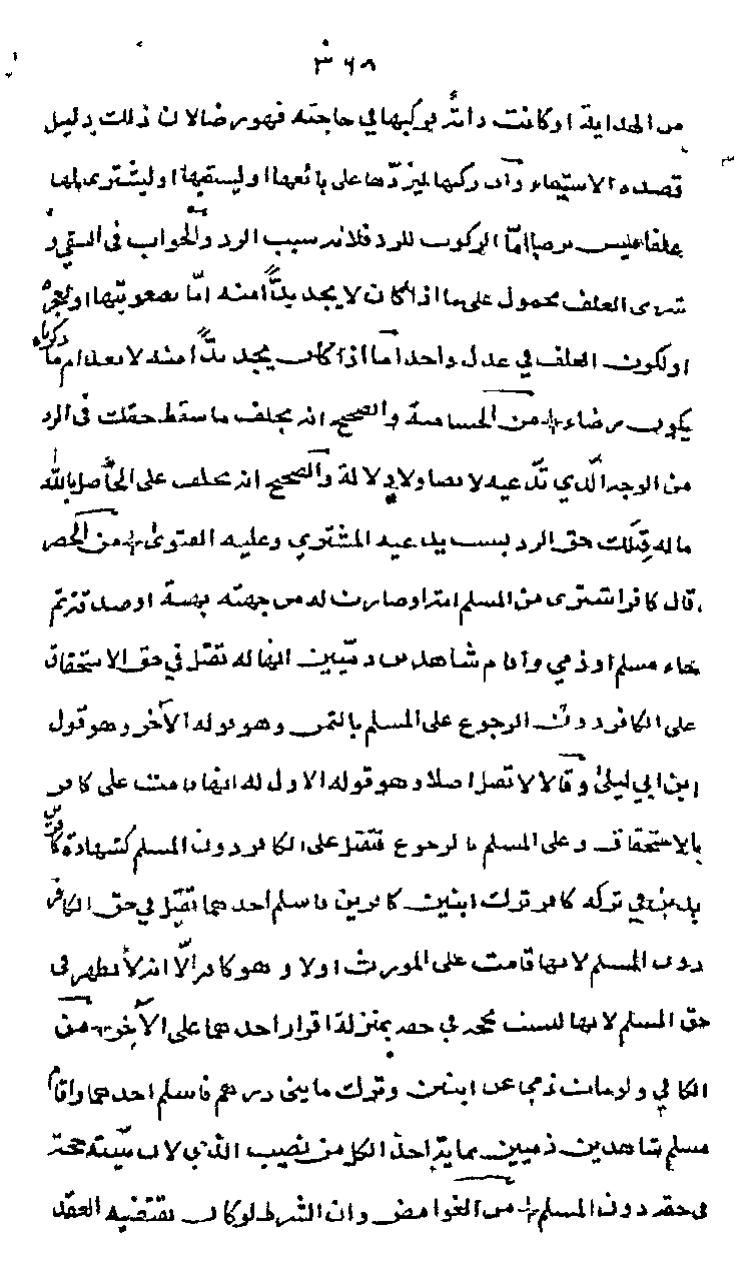 ٣٦٨
من الهداية او كانت دابة فركبها في حاجته فهو رضا لان ذلك دليل
قصده الاستبقاء وان ركبها ليردها على بائعها او ليسقيها او ليشتري لها
علفا فليس برضا امّا الركوب للرد فلانه سبب الرد والجواب في السقي و
شرى العلف محمول على ما اذا كان لا يجد بدًّا منه امّا لصعوبتها او لعجزه
او لكون العلف في عدل واحد اما اذا كان يجد بدًّا منه لانعدام ما ذكرناه
يكون رضاء من الحسامية والصحيح انه يحلف ما سقط حقك في الرد
من الوجه الّذي تدّعيه لا نصا ولا دلالة والصحيح انه يحلف على الحاصل بالله
ما له قبلك حق الرد بسبب يدعيه المشتري وعليه الفتوى من الحصر
قال كافر اشترى من المسلم امة او صارت له من جهته بهبة او صدقة ثم
جاء مسلم او ذمي واقام شاهدين ذميين انها له تقبل في حق الاستحقاق
على الكافر دون الرجوع على المسلم بالثمن وهو قوله الآخر وهو قول
ابن ابي ليلى وقالا لا تقبل اصلا وهو قوله الاول له انها قامت على كافر
بالاستحقاق وعلى المسلم بالرجوع فتقبل على الكافر دون المسلم كشهادة كافرين
بدين في تركة كافر ترك ابنين كافرين فاسلم احدهما تقبل في حق الكافر
دون المسلم لانها قامت على المورث اولا وهو كافر الّا انه لا يظهر في
حق المسلم لانها ليست بحجة في حقه بمنزلة اقرار احدهما على الآخر من
الكافي ولو مات ذمي عن ابنين وترك مايتى درهم فاسلم احدهما واقام
مسلم شاهدين ذميين بماية اخذ الكل من نصيب الذمي لان بينته حجة
في حقه دون المسلم من الغوامض وان الشرط لو كان يقتضيه العقد